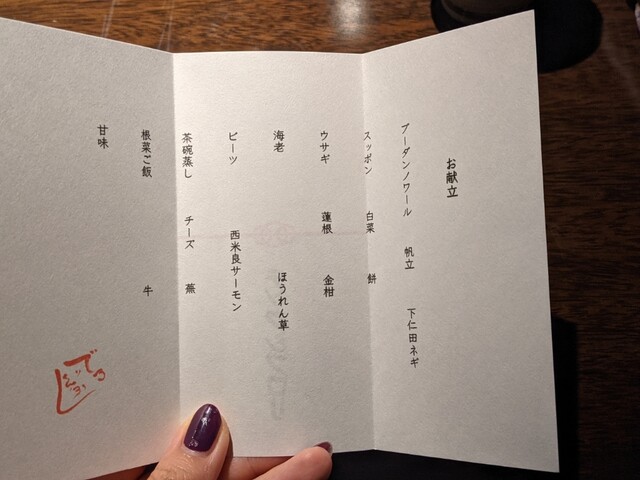 お献立
ブーダンノワール 帆立 下仁田ネギ
スッポン 白菜 餅
ウサギ 蓮根 金柑
海老 ほうれん草
ビーツ 西米良サーモン
茶碗蒸し チーズ 蕪
根菜ご飯 牛
甘味